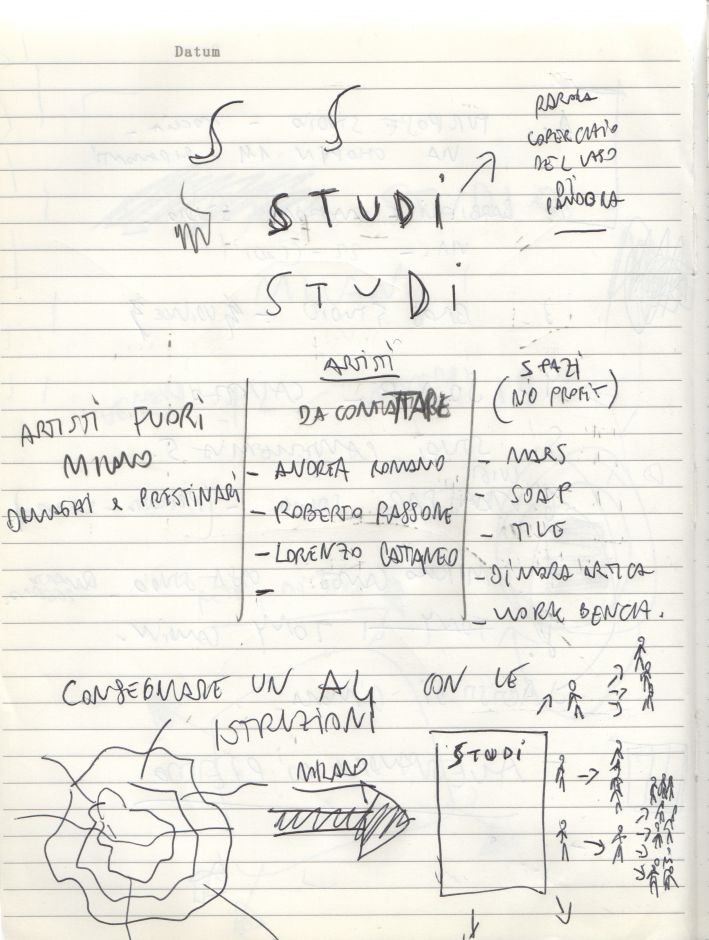 Datum
S S
PAROLA
COPERCHIO
DEL VASO
DI
PANDORA
STUDI
STUDI
ARTISTI FUORI
MILANO
DRAGHI & PRESTINARI
ARTISTI
DA CONTATTARE
- ANDREA ROMANO
- ROBERTO FASSONE
- LORENZO CATTANEO
-
SPAZI
(NO PROFIT)
- MARS
- SOAP
- TILE
- DIMORA ARTICA
- WORK BENCH.
CONSEGNARE UN A4 CON LE
ISTRUZIONI
MILANO
STUDI